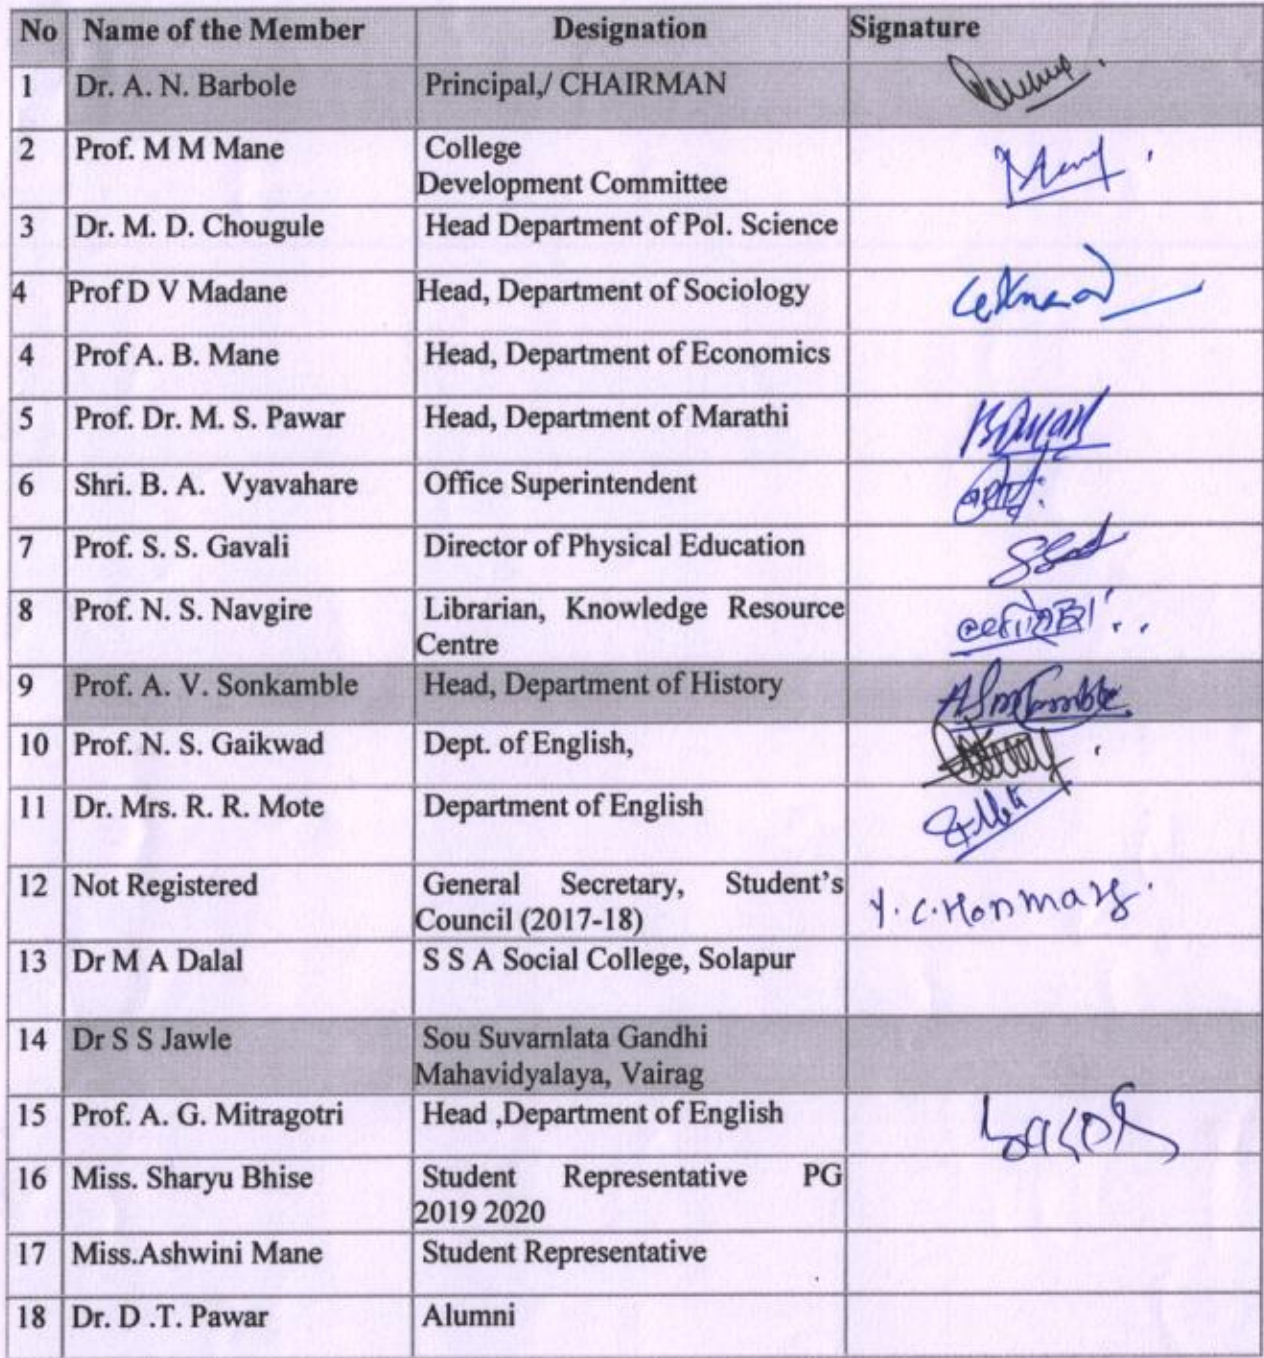 No Name of the Member Designation Signature
1 Dr. A. N. Barbole Principal,/ CHAIRMAN
2 Prof. M M Mane College
Development Committee
3 Dr. M. D. Chougule Head Department of Pol. Science
4 Prof D V Madane Head, Department of Sociology
4 Prof A. B. Mane Head, Department of Economics
5 Prof. Dr. M. S. Pawar Head, Department of Marathi
6 Shri. B. A. Vyavahare Office Superintendent
7 Prof. S. S. Gavali Director of Physical Education
8 Prof. N. S. Navgire Librarian, Knowledge Resource
Centre
9 Prof. A. V. Sonkamble Head, Department of History
10 Prof. N. S. Gaikwad Dept. of English,
11 Dr. Mrs. R. R. Mote Department of English
12 Not Registered General Secretary, Student's
Council (2017-18)
13 Dr M A Dalal S S A Social College, Solapur
14 Dr S S Jawle Sou Suvarnlata Gandhi
Mahavidyalaya, Vairag
15 Prof. A. G. Mitragotri Head ,Department of English
16 Miss. Sharyu Bhise Student Representative PG
2019 2020
17 Miss.Ashwini Mane Student Representative
18 Dr. D .T. Pawar Alumni